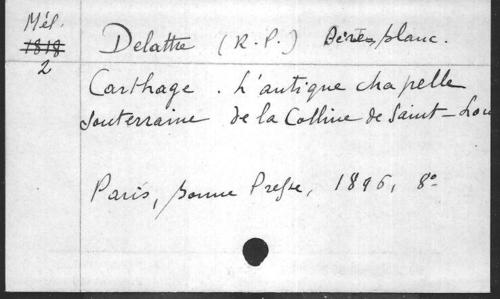 Mél.
1818
2
Delattre (R.P.) Pères blanc.
Carthage. L'antique chapelle
souterraine de la Colline de Saint-Lou
Paris, bonne Presse, 1896, 8°